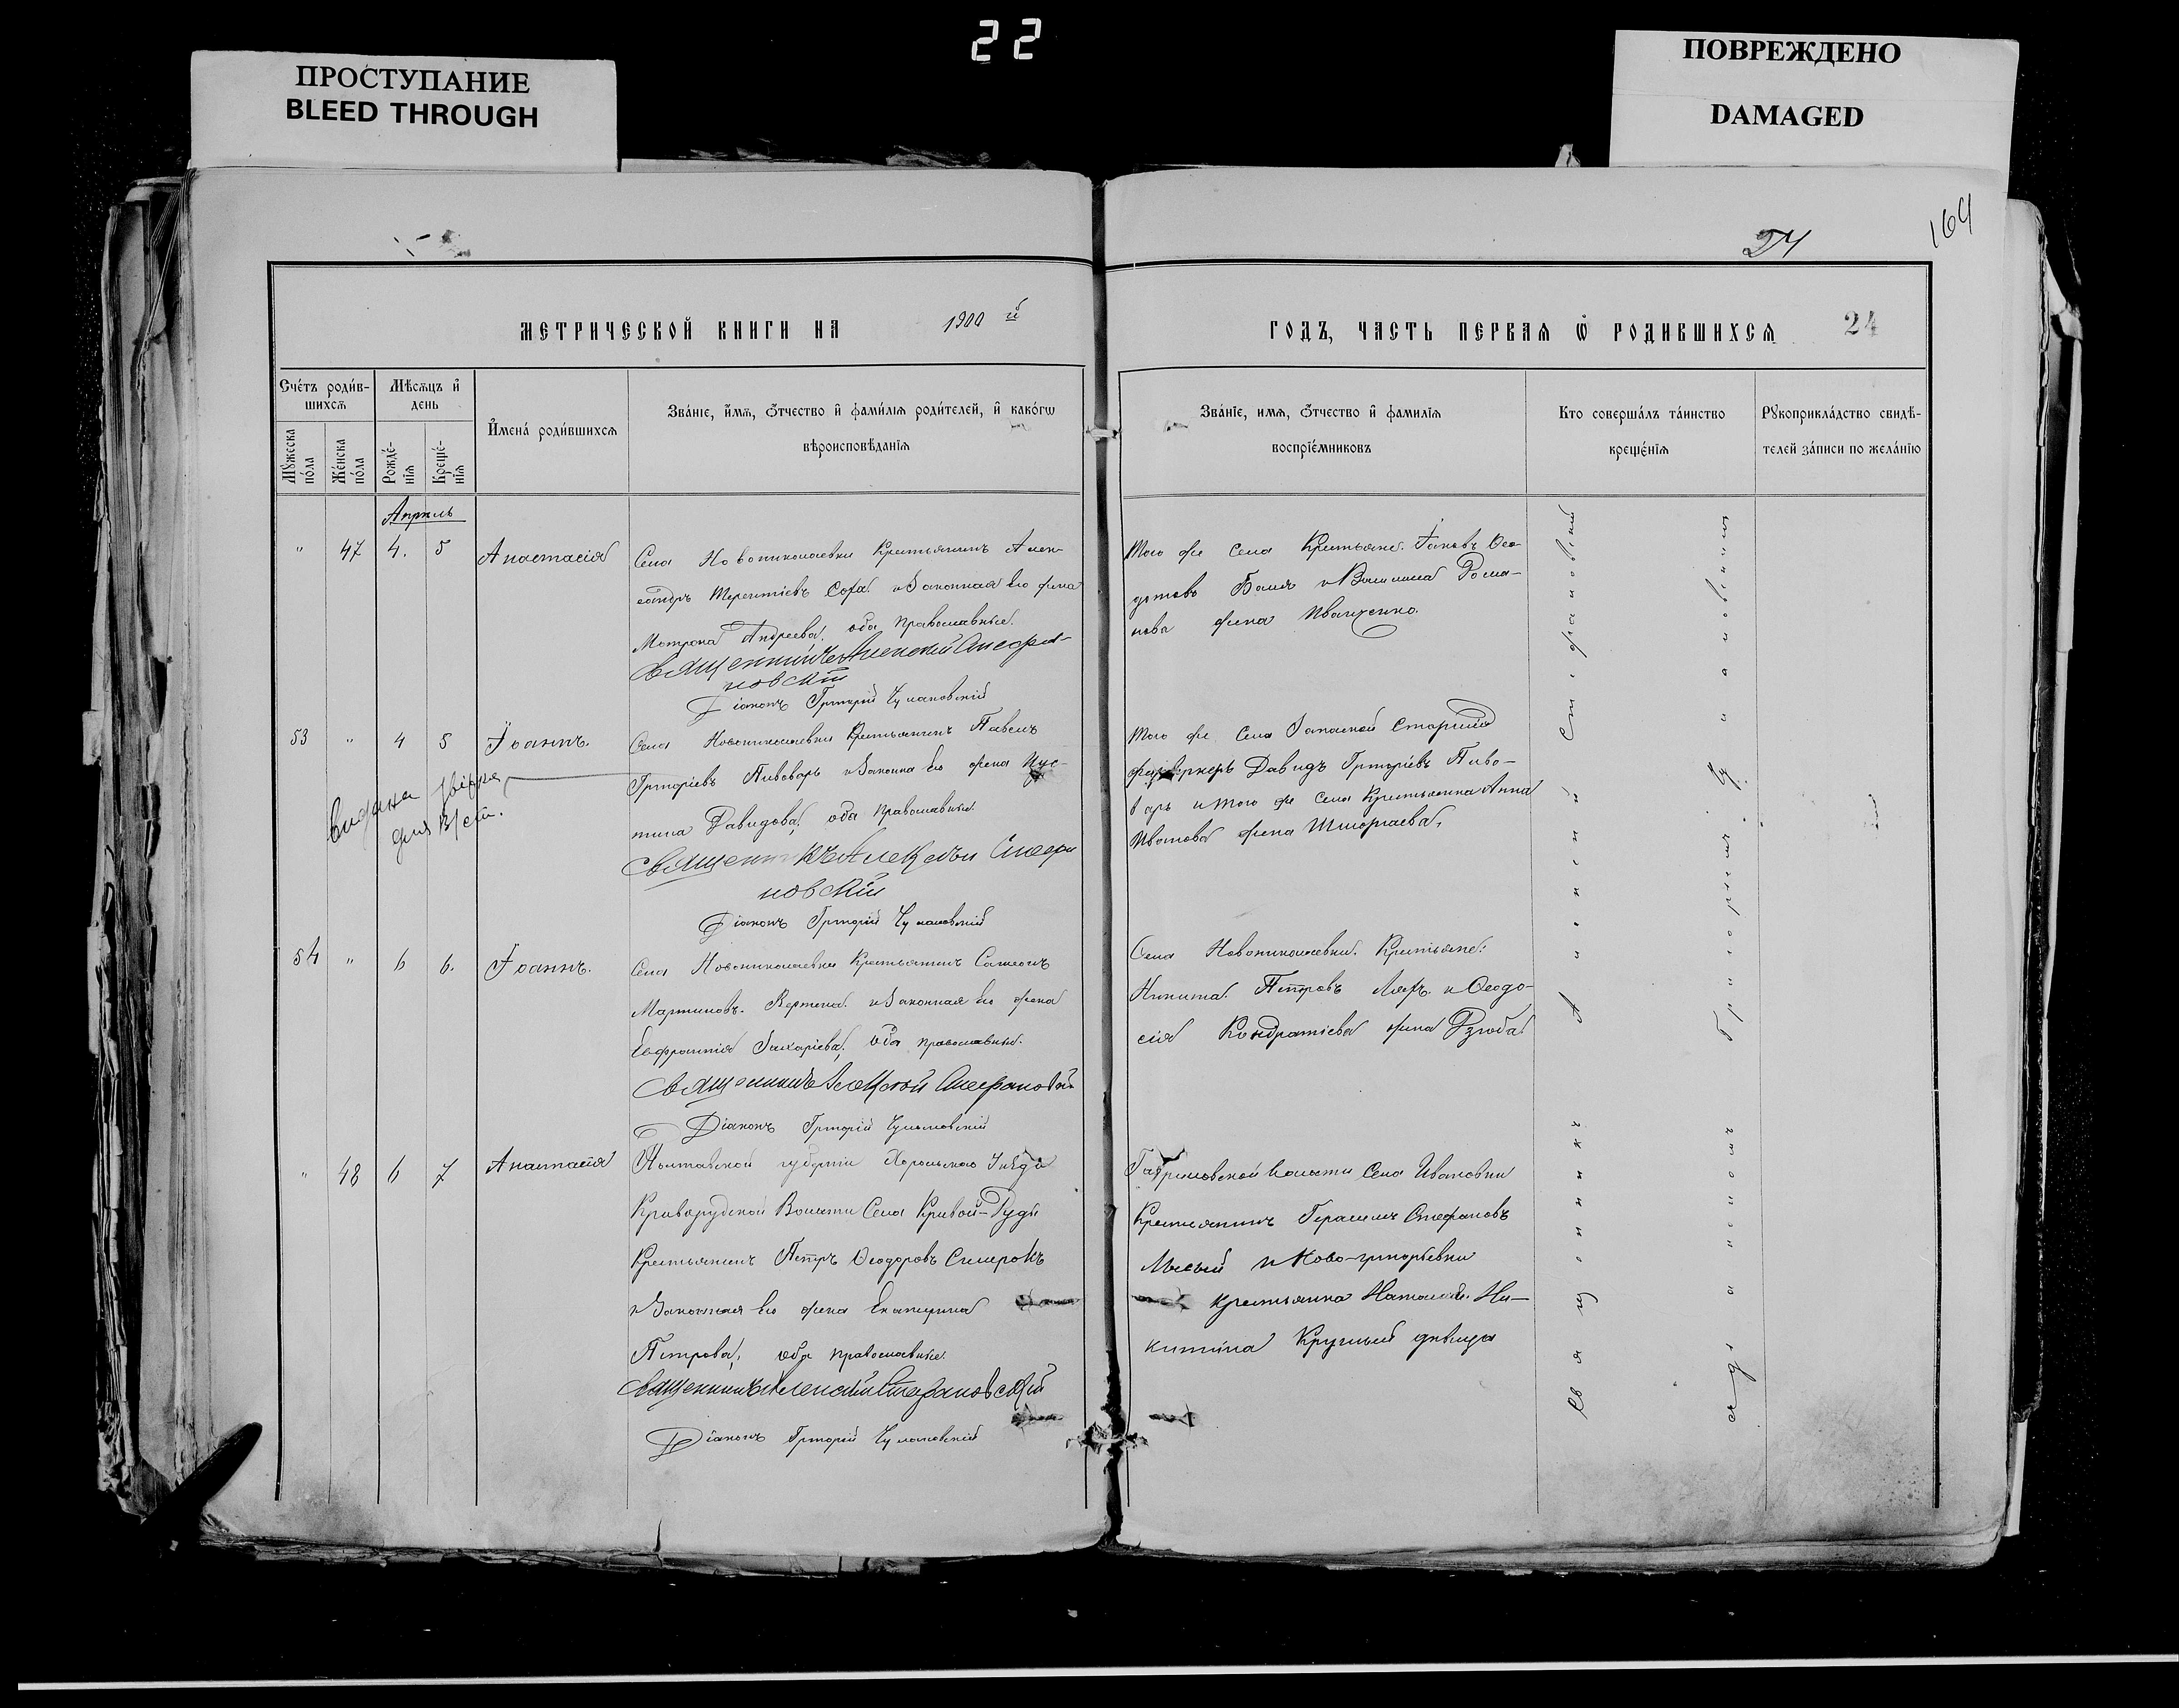 22
ПРОСТУПАНИЕ
BLEED THROUGH
ПОВРЕЖДЕНО
DAMAGED
164
24
МЕТРИЧЕСКОЙ КНИГИ НА 1900 й
ГОДЪ, ЧАСТЬ ПЕРВАЯ Ѡ РОДИВШИХСЯ 24
Счетъ родив-
шихся
Мѣсяцъ и
день
Мужеска
пола
Женска
пола
Рожде-
нія
Креще-
нія
Имена родившихся
Званіе, имя, отчество и фамилія родителей, и какогѡ
вѣроисповѣданія
Званіе, имя, отчество и фамилія
воспріемниковъ
Кто совершалъ таинство
крещенія
Рукоприкладство свидѣ-
телей записи по желанію
Апрель
" 47 4. 5 Анастасія
Села Новониколаевки Крестьянинъ Алек-
сандръ Терентіевъ Сова и Законная его жена
Матрона Андреева, оба православные.
Священникъ Алексій Стефа-
новскій
Діаконъ Григорій Чулановскій
Того же села Крестьяне: Іаковъ Ѳео-
Рома-
нова жена Иванченко.
53 " 4 5 Іоаннъ.
Села Новониколаевки Крестьянинъ Павелъ
Григоріевъ Пивоваръ и Законна его жена Иус-
тина Давидова, оба православные.
Священникъ Алексій Стефа
новскій
Діаконъ Григорій Чулановскій
видана
для
Того же Села Запасной Старшій
фейерверкеръ Давидъ Григоріевъ Пиво-
варъ и того же Села Крестьянка Анна
Иванова жена
54 " 6 6. Іоаннъ.
Села Новониколаевки Крестьянинъ Самсонъ
Мартиновъ. и Законная его жена
Захаріева, оба православные.
Священникъ Алексій Стефановскій
Діаконъ Григорій Чулановскій
Села Новониколаевки. Крестьяне:
Никита Петровъ и Ѳеодо-
сія Кондратіева жена Дзюба
" 48 6 7 Анастасія
Полтавской губерніи Хорольскаго Уѣзда
Криворудской Волости Села Кривой-Руды
Крестьянинъ Петръ Ѳеодоровъ
и Законная его жена Екатерина
Петрова, оба православные.
Священникъ Алексій Стефановскій
Діаконъ Григорій Чулановскій
Гавриловской Волости Села Ивановки
Крестьянинъ Герасимъ Стефановъ
Лысый и Ново-григорьевки
крестьянка Наталія Ни-
китина Круглый дѣвица
Священникъ Алексій Стефановскій
съ діакономъ Григоріемъ Чулановскимъ